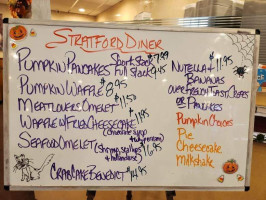 STRATFORD DINER
PUMPKIN PANCAKES Short Stack $7.99
Full Stack $9.45
PUMPKIN WAFFLE $8.95
MEATLOVERS OMELET $11.50
WAFFLE W/ FRIED CHEESECAKE $11.95
SEAFOOD OMELET (Shrimp, scallops $16.95
+ hollandaise)
CRABCAKE BENEDICT $14.95
NUTELLA + $11.95
BANANAS
OVER FRENCH TOAST, CREPES
OR PANCAKES
PUMPKIN CHOICES
Pie
Cheesecake
Milkshake